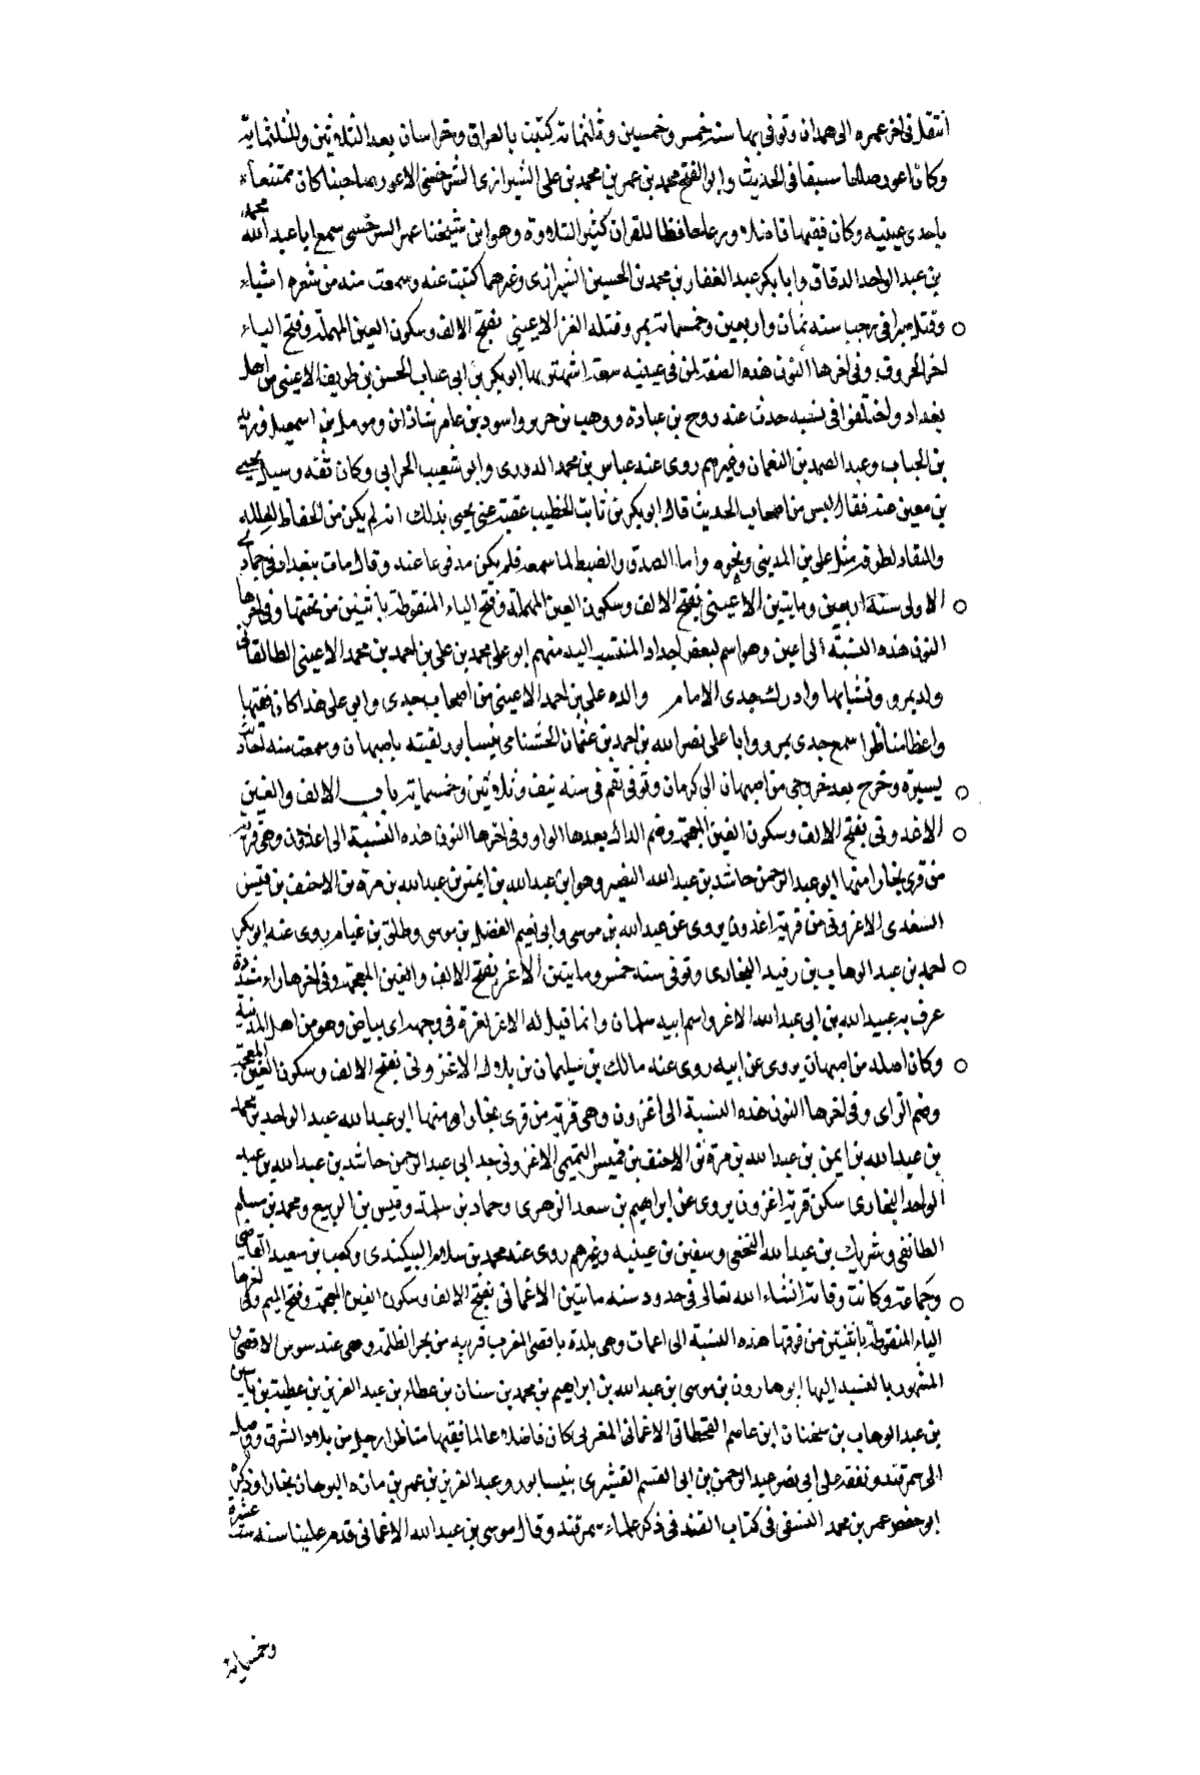 انتقل فى اخر عمره الى همدان وتوفى بها سنه خمس وخمسين وثلثماتة كتبت بالعراق وخراسان بعد الثلاثين والثلثماية
وكان اعور صالحا سبقا فى الحديث وابو الفتح محمد بن عمر بن محمد بن على الشيرازى السرخسى الاعور صاحبنا كان ممتنعاء
باحدى عينيه وكان فقيها فاضلا ورعا حافظا للقران كثير التلاوة وهو ابن شيخنا عمر السرخسى سمع ابا عبد الله محمد
بن عبد الواحد الدقاق وابا بكر عبد الغفار بن محمد بن الحسين الشيرازى وغيرهما كتبت عنه وسمعت منه من شعره اشياء
وقتل صبرا فى رجب سنه ثمان واربعين وخمسماتة بمرو قتله الغز الاعينى بفتح الالف وسكون العين المهملة وفتح الياء
اخر الحروف وفى اخرها النون هذه الصفة لمن فى عينيه سعة اشهر بها ابو بكر بن ابى عتاب الحسن بن طريف الاعينى من اهل
بغداد واختلفوا فى نسبه حدث عنه روح بن عبادة ووهب بن جرير واسود بن عامر شاذان ومومل بن اسمعيل وزيد
بن الحباب وعبد الصمد بن النعمان وغيرهم روى عنه عباس بن محمد الدورى وابو شعيب الحرانى وكان ثقه وسيل يحيى
بن معين عنه فقال ليس من اصحاب الحديث قال ابو بكر بن ثابت الخطيب عقبه عنى يحيى بذلك انه لم يكن من الحفاظ لعلله
والنقاد لطرقه مثل على بن المدينى ونحوه واما الصدق والضبط لما سمعه فلم يكن مدفوعا عنه وقال مات ببغداد فى جمادى
الاولى سنة اربعين ومايتين الاعينى بفتح الالف وسكون العين المهملة وفتح الياء المنقوطة باثنتين من تحتها وفى اخرها
النون هذه النسبة الى اعين وهو اسم لبعض اجداد المنتسب اليه منهم ابو على محمد بن على بن احمد بن محمد الاعينى الطالقانى
ولد بمرو ونشا بها وادرك جدى الامام والده على بن احمد الاعينى من اصحاب جدى وابو على هذا كان فقيها
واعظا مناظرا سمع جدى بمرو وابا على نصر الله بن احمد بن عثمان الخشنامى بنيسابور لقيته باصبهان وسمعت منه احاديث
يسيرة وخرج بعد خروجى من اصبهان الى كرمان وتوفى بقم فى سنه نيف وثلاثين وخمسماية باب الالف والغين
الاغدونى بفتح الالف وسكون الغين المعجمة وضم الدال بعدها الواو وفى اخرها النون هذه النسبة الى اغذون وهى قرية
من قرى بخارا منها ابو عبد الرحمن حاشد بن عبد الله القصير وهو ابن عبد الله بن ايمن بن عبد الله بن مرة بن الاحنف بن قيس
السغدى الاغزونى من قرية اغذون يروى عن عبد الله بن موسى وابى نعيم الفضل بن موسى وطلق بن غيام روى عنه ابو بكر
احمد بن عبد الوهاب بن رفيد البخارى وتوفى سنه خمس ومايتين الاغر بفتح الالف والغين المعجمة وفى اخرها راء مشددة
عرف به عبيد الله بن ابى عبد الله الاغر واسم ابيه سلمان وانما قيل له الاغر لغرة فى وجهه اى بياض وهو من اهل المدينة
وكان اصله من اصبهان يروى عن ابيه روى عنه مالك بن سليمان بن بلال الاغزونى بفتح الالف وسكون الغين المعجمة
وضم الزاى وفى اخرها النون هذه النسبة الى اغزون وهى قرية من قرى بخارا منها ابو عبد الله عبد الواحد بن محمد
بن عبد الله بن ايمن بن عبد الله بن مرة بن الاحنف بن قيس التميمى الاغزونى جد ابى عبد الرحمن حاشد بن عبد الله بن عبد
الواحد البخارى سكن قرية اغزون يروى عن ابراهيم بن سعد الزهرى وحماد بن سلمة وقيس بن الربيع ومحمد بن مسلم
الطائفى وشريك بن عبد الله النخعى وسفين بن عيينه وغيرهم روى عنه محمد بن سلام البيكندى وكعب بن سعيد القاضى
وجماعة وكانت وفاته انشاء الله تعالى فى حدود سنه مايتين الاغماتى بفتح الالف وسكون الغين المعجمة وفتح الميم وفى اخرها
التاء المنقوطة باثنيتن من فوقها هذه النسبة الى اغمات وهى بلدة باقصى المغرب قريبه من بحر الظلمة وهى عند سوس الاقصى
المشهور بالنسبة اليها ابو هارون بن موسى بن عبد الله بن ابراهيم بن محمد بن سنان بن عطاء بن عبد العزيز بن عطية بن ياسين
بن عبد الوهاب بن سحنان ابن عاصم القحطانى الاغماتى المغربى كان فاضلا عالما فقيها مناظرا رحل من بلاد الشرق ووصل
الى سمرقند وتفقه على ابى نصر عبد الرحمن بن ابى القسم القشيرى بنيسابور وعبد العزيز بن عمر بن مازه البرهان بخارا وذكره
ابو حفص عمر بن محمد النسفى فى كتاب القند فى ذكر علماء سمرقند وقال موسى بن عبد الله الاغماتى قدم علينا سنه ست عشرة
وخمسماية